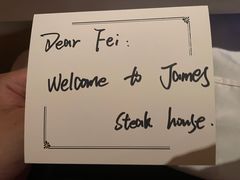 Dear Fei:
Welcome to James
Steak house.